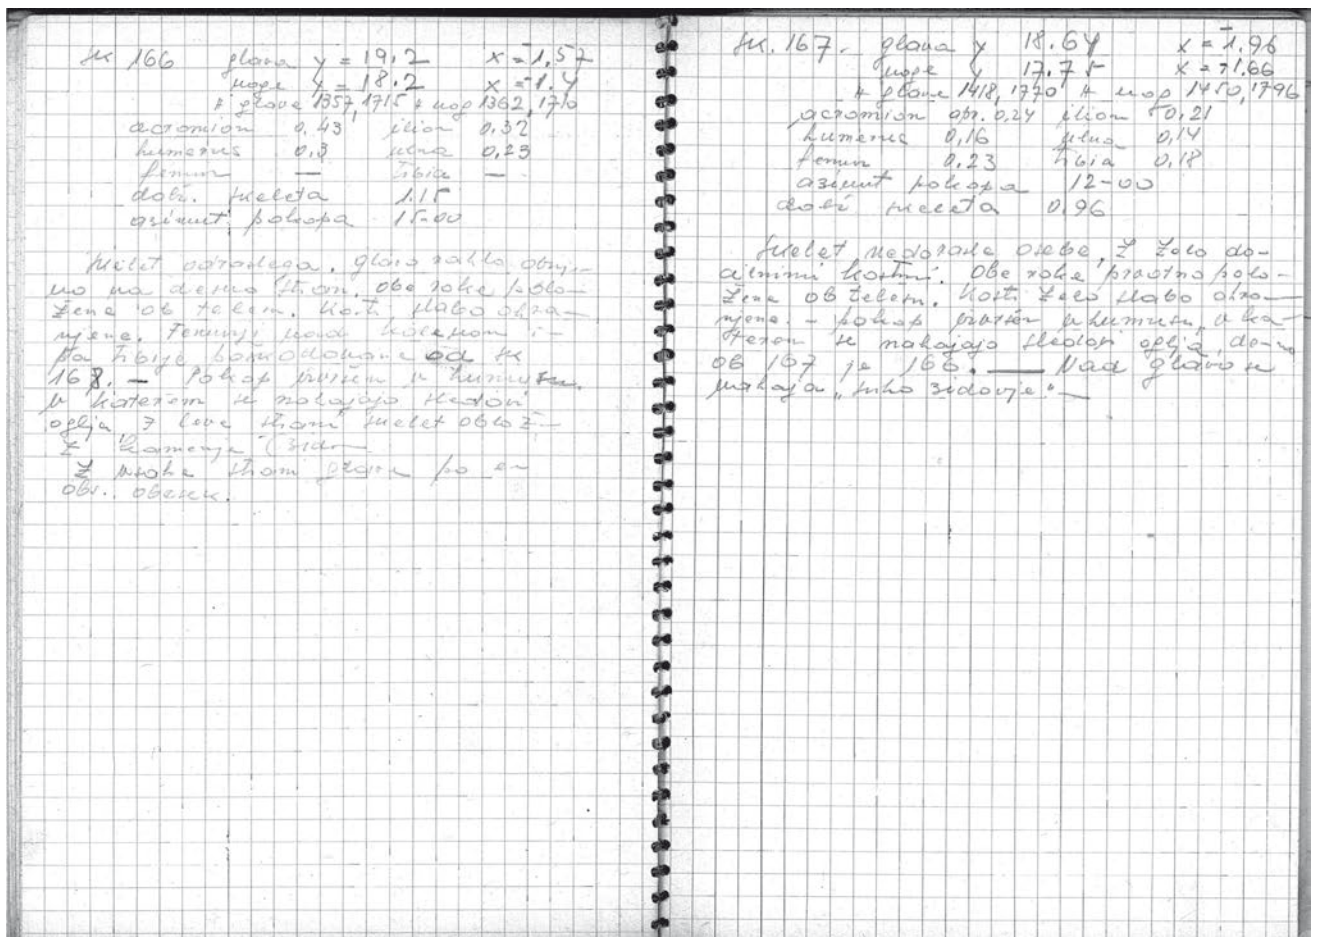 sk 166 glava y = 19,2 x = -1,57
noge y = 18.2 x = -1.4
+ glave 1357, 1715 + nog 1362, 1710
acromion 0,43 ilion 0,32
humerus 0,3 ulna 0,23
femur — tibia —
dolž. skeleta 1.15
azimut pokopa 15-00
Skelet odraslega, glava rahlo obrnje-
no na desno stran, obe roke polo-
žene ob telesu. Kosti slabo ohra-
njene. Femurji nad kolenom i-
pa tibije poškodovane od sk
167. — Pokop izvršen v humusu,
v katerem se nahajajo sledovi
oglja z leve strani skelet oblož-
z kamenja
Z strani glave po en
obs. obesek.
sk. 167. glava y 18.64 x = -1.96
noge y 17.75 x = -1.66
+ glave 1418, 1770 + nog 1450, 1796
acromion apr. 0,24 ilion 0,21
humerus 0,16 ulna 0,14
femur 0.23 tibia 0,18
azimut pokopa 12-00
dolž skeleta 0,96
Skelet nedorasle osebe, z zelo
kostmi. Obe roke prvotno polo-
žene ob telesu. Kosti zelo slabo ohra-
njene. - pokop izvršen v humusu, v ka-
terem se nahajajo sledovi oglja,
ob 167 je 166. — Nad glavo se
nahaja „suho zidovje." —